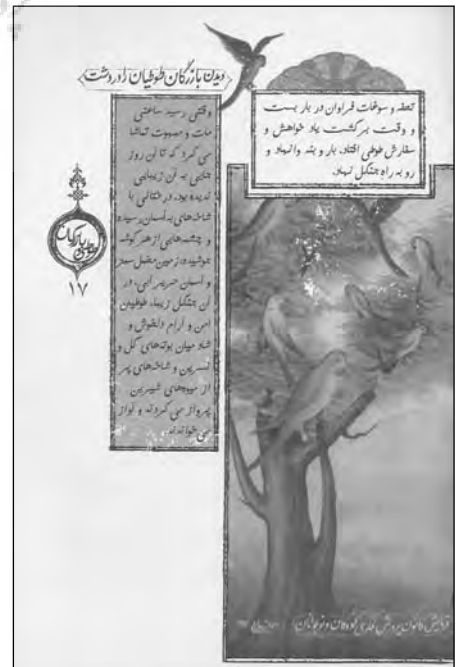 دیدن بازرگان طوطیان را در دشت
تحفه و سوغات فراوان در بار بست
و وقت برگشت یاد خواهش و
سفارش طوطی افتاد. بار و بنه وانهاد و
رو به راه جنگل نهاد.
وقتی رسید ساعتی
مات و مبهوت تماشا
می کرد که تا آن روز
جایی به آن زیبایی
ندیده بود. درختانی با
شاخه‌های به آسمان رسیده
و چشمه‌هایی از هر گوشه
جوشیده. زمین مخمل سبز
و آسمان حریر آبی. در
آن جنگل زیبا، طوطیان
امن و آرام دلخوش و
شاد میان بوته‌های گل و
نسرین و شاخه‌های پر
از میوه‌های شیرین
پرواز می کردند و آواز
می خواندند
طوطی و بازرگان
۱۷
کانون پرورش فکری کودکان و نوجوانان